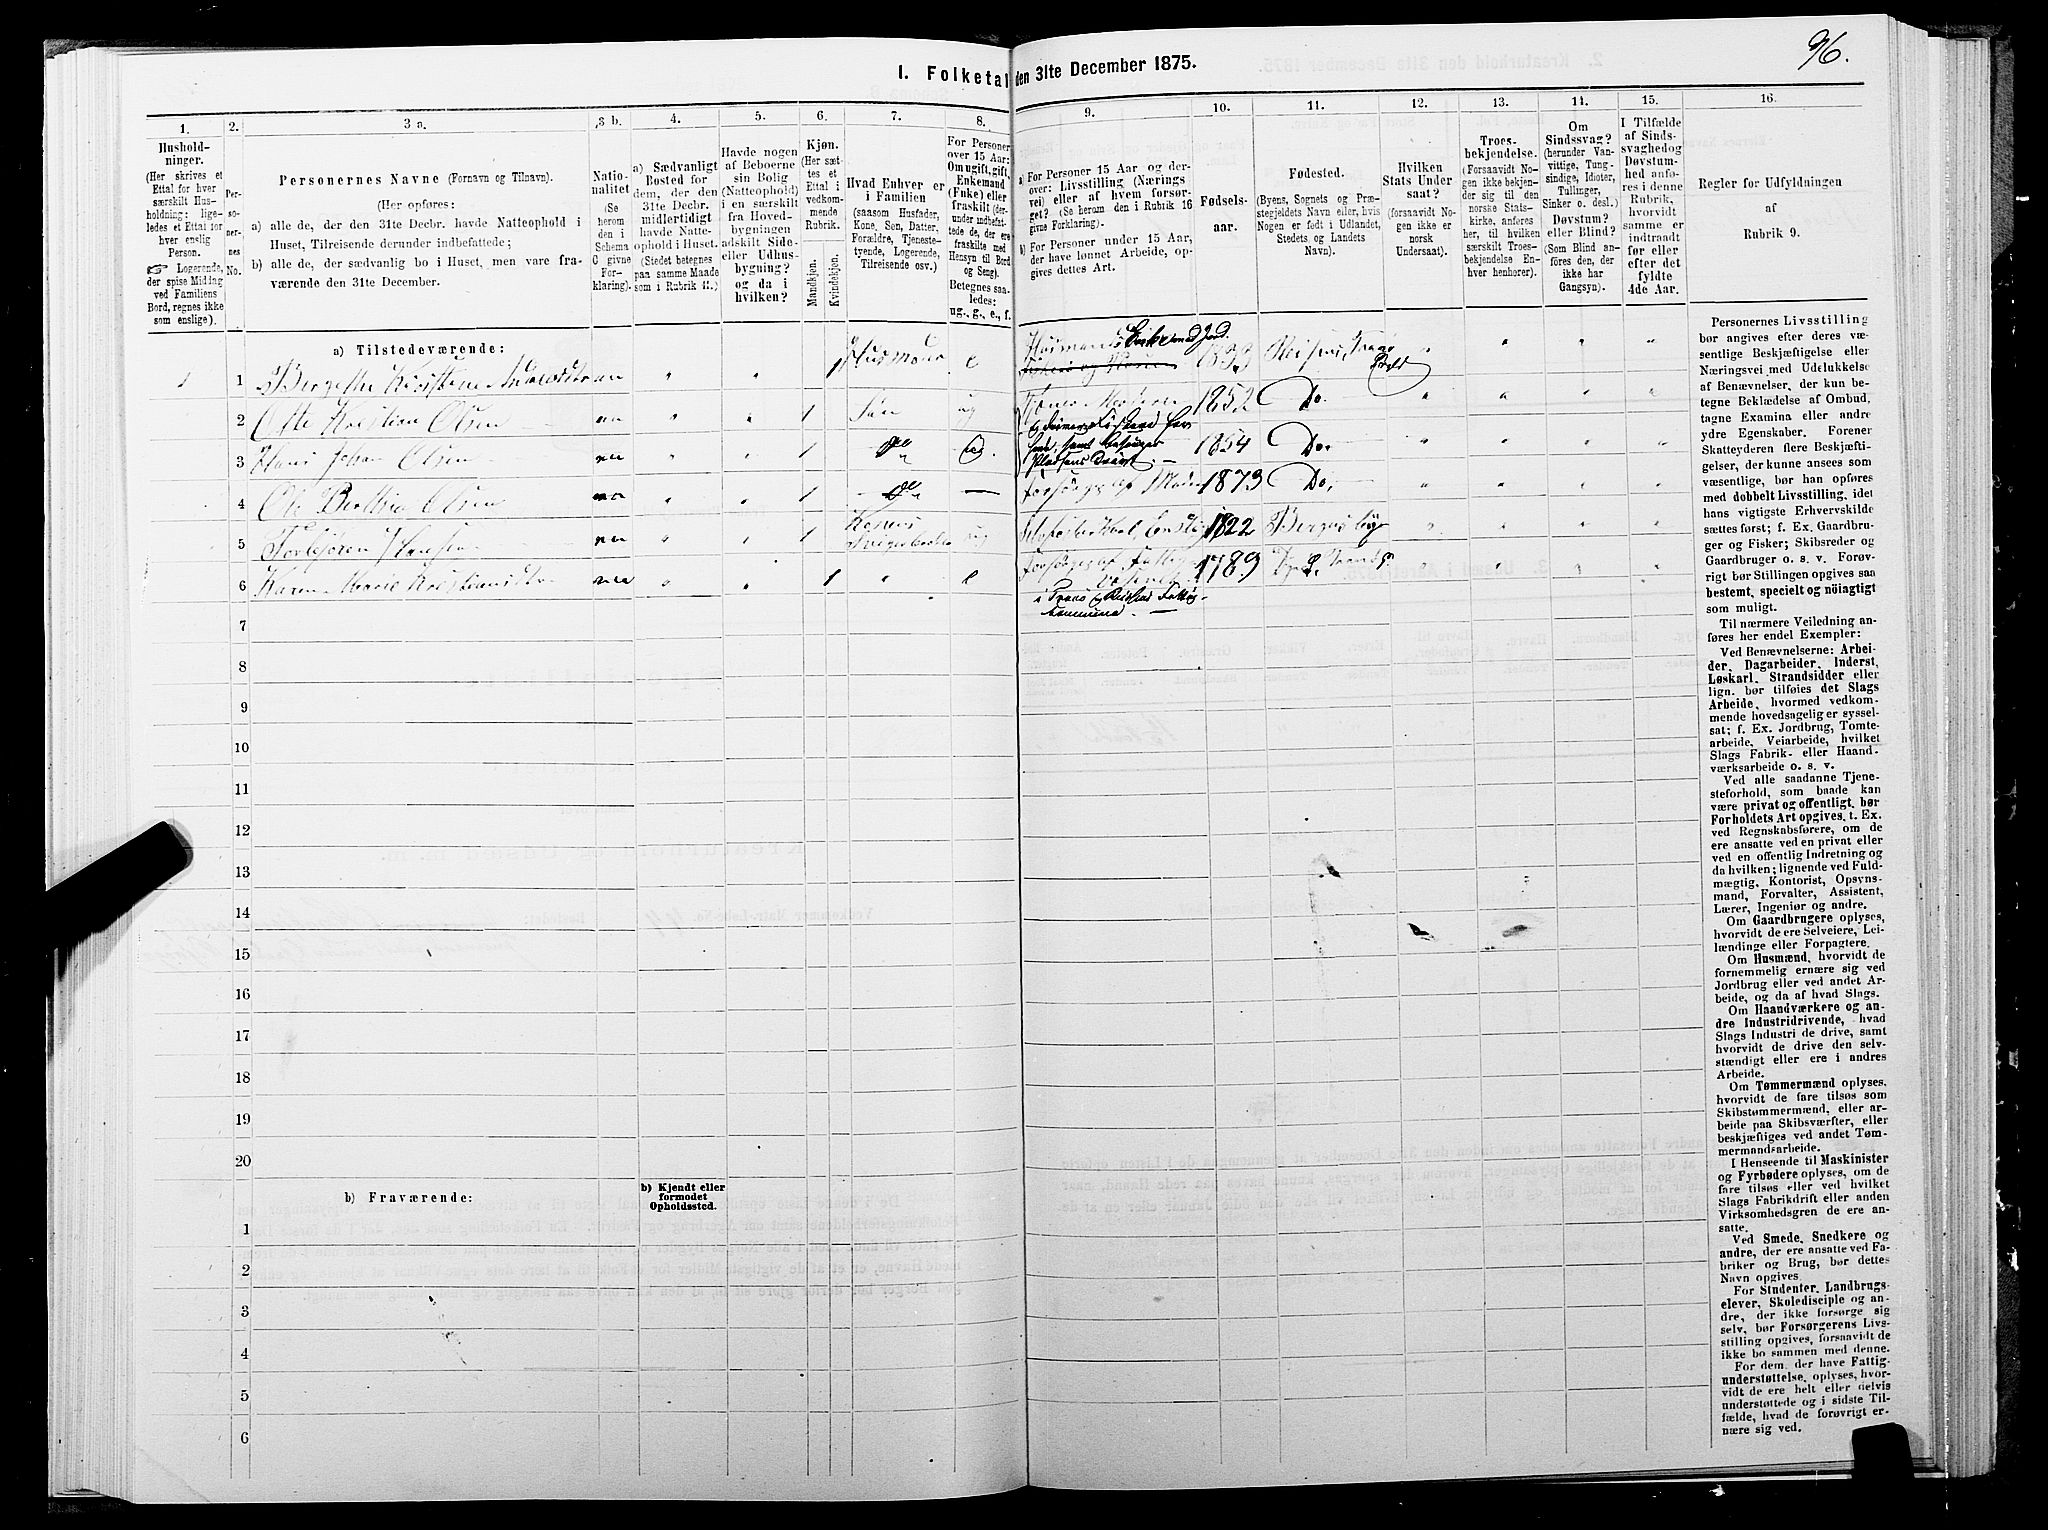 96.
I. Folketal den 31te December 1875.
1.
Hushold-
ninger.
(Her skrives et
Ettal for hver
særskilt Hus-
holdning; lige-
ledes et Ettal for
hver enslig
Person.
☞ Logerende,
der spise Middag
ved Familiens
Bord, regnes ikke
som enslige).
2.
Per-
so-
ner-
nes
No.
3 a.
Personernes Navne (Fornavn og Tilnavn).
(Her opføres:
a) alle de, der den 31te Decbr. havde Natteophold i
Huset, Tilreisende derunder indbefattede;
b) alle de, der sædvanlig bo i Huset, men vare fra-
værende den 31te December.
3 b.
Natio-
nalitet
(Se
herom
den i
Schema
C givne
For-
klaring).
4.
a) Sædvanligt
Bosted for
dem, der den
31te Decbr.
midlertidigt
havde Natte-
ophold i Huset.
(Stedet betegnes
paa samme Maade
som i Rubrik 11.)
5.
Havde nogen
af Beboerne
sin Bolig
(Natteophold)
i en særskilt
fra Hoved-
bygningen
adskilt Side-
eller Udhus-
bygning?
og da i
hvilken?
6.
Kjøn.
(Her sæt-
tes et
Ettal i
vedkom-
mende
Rubrik.
Mandkjøn.
Kvindekjøn.
7.
Hvad Enhver er
i Familien
(saasom Husfader,
Kone, Søn, Datter,
Forældre, Tjeneste-
tyende, Logerende,
Tilreisende osv.)
8.
For Personer
over 15 Aar:
Om ugift, gift,
Enkemand
(Enke) eller
fraskilt (der-
under indbefat-
tede de, der ere
fraskilte med
Hensyn til Bord
og Seng).
Betegnes saa-
ledes:
ug., g., e., f.
9.
a) For Personer 15 Aar og der-
over: Livsstilling (Nærings
vei) eller af hvem forsør-
get? (Se herom den i Rubrik 16
givne Forklaring).
b) For Personer under 15 Aar,
der have lønnet Arbeide, op-
gives dettes Art.
10.
Fødsels-
aar.
11.
Fødested.
(Byens, Sognets og Præ-
stegjeldets Navn eller, hvis
Nogen er født i Udlandet,
Stedets og Landets
Navn).
12.
Hvilken
Stats Under
saat?
(forsaavidt No-
gen ikke er
norsk
Undersaat).
13.
Troes-
bekjendelse.
(Forsaavidt No-
gen ikke bekjen-
der sig til den
norske Stats-
kirke, anføres
her, til hvilken
særskilt Troes-
bekjendelse En-
hver henhører).
14.
Om
Sindssvag?
(herunder Van-
vittige, Tung-
sindige, Idioter,
Tullinger,
Sinker o. desl.)
Døvstum?
eller Blind?
(Som Blind an-
føres den, der
ikke har
Gangsyn).
15.
I Tilfælde
af Sinds-
svaghed og
Døvstum-
hed anfø-
res i denne
Rubrik,
hvorvidt
samme er
indtraadt
før eller
efter det
fyldte
4de Aar.
16.
Regler for Udfyldningen
af
Rubrik 9.
a) Tilstedeværende:
1 1 Bergethe Kristine " " Husmoder e 1833 "
2 Ofte Kristian Olsen " " 1 Søn ug 1852 Do. "
3 Hans Johan Olsen " " 1 ug. 1854 Do. "
4 Ole Olsen " " 1 — Forsørges af Moder 1873 Do. "
5 Torbjøren Hansen " " 1 ug 1822 "
6 Karen Marie " " 1 " e 1789 "
7
8
9
10
11
12
13
14
15
16
17
18
19
20
b) Fraværende:
b) Kjendt eller
formodet
Opholdssted.
1
2
3
4
5
6
Personernes Livsstilling
bør angives efter deres væ-
sentlige Beskjæftigelse eller
Næringsvei med Udelukkelse
af Benævnelser, der kun be-
tegne Beklædelse af Ombud,
tagne Examina eller andre
ydre Egenskaber. Forener
Skatteyderen flere Beskjæfti-
gelser, der kunne ansees som
væsentlige, bør han opføres
med dobbelt Livsstilling, idet
hans vigtigste Erhvervskilde
sættes først; f. Ex. Gaardbru-
ger og Fisker; Skibsreder og
Gaardbruger o. s. v. Forøv-
rigt bør Stillingen opgives saa
bestemt, specielt og nöiagtigt
som muligt.
Til nærmere Veiledning an-
føres her endel Exempler:
Ved Benævnelserne: Arbei-
der, Dagarbeider, Inderst,
Løskarl, Strandsidder eller
lign. bør tilføies det Slags
Arbeide, hvormed vedkom-
mende hovedsagelig er syssel-
sat; f. Ex. Jordbrug, Tomte-
arbeide, Veiarbeide, hvilket
Slags Fabrik- eller Haand-
værksarbeide o. s. v.
Ved alle saadanne Tjene-
steforhold, som baade kan
være privat og offentligt, bør
Forholdets Art opgives, t. Ex.
ved Regnskabsførere, om de
ere ansatte ved en privat eller
ved en offentlig Indretning og
da hvilken; lignende ved Fuld-
mægtig, Kontorist, Opsyns-
mand, Forvalter, Assistent,
Lærer, Ingeniør og andre.
Om Gaardbrugere oplyses,
hvorvidt de ere Selveiere, Lei-
lændinge eller Forpagtere.
Om Husmænd, hvorvidt de
fornemmelig ernære sig ved
Jordbrug eller ved andet Ar-
beide, og da af hvad Slags.
Om Haandværkere og an-
dre Industridrivende, hvad
Slags Industri de drive, samt
hvorvidt de drive den selv-
stændigt eller ere i andres
Arbeide.
Om Tømmermænd oplyses,
hvorvidt de fare tilsøs som
Skibstømmermænd, eller ar-
beide paa Skibsværfter, eller
beskjæftiges ved andet Tøm-
mermandsarbeide.
I Henseende til Maskinister
og Fyrbødere oplyses, om de
fare tilsøs eller ved hvilket
Slags Fabrikdrift eller anden
Virksomhedsgren de ere an-
satte.
Ved Smede, Snedkere og
andre, der ere ansatte ved Fa-
briker og Brug, bør dettes
Navn opgives.
For Studenter, Landbrugs-
elever, Skoledisciple og an-
dre, der ikke forsørge sig
selv, bør Forsørgerens Livs-
stilling opgives, forsaavidt de
ikke bo sammen med denne.
For dem, der have Fattig-
understøttelse, oplyses, hvor-
vidt de ere helt eller delvis
understøttede og i sidste Til-
fælde, hvad de forøvrigt er-
nære sig ved.